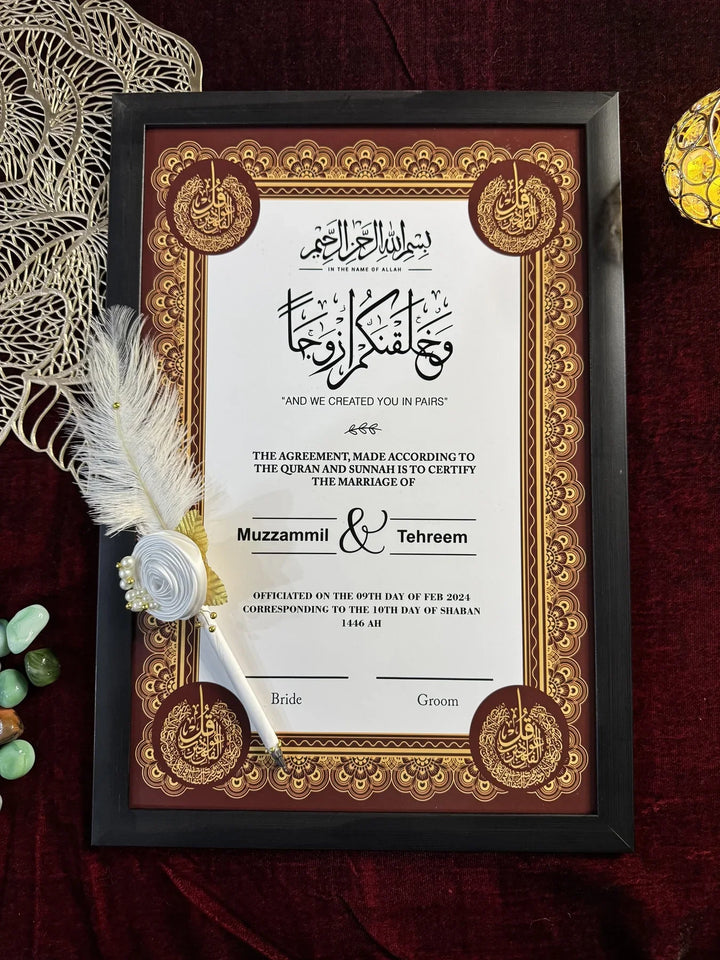 بسم الله الرحمن الرحيم
IN THE NAME OF ALLAH
وَخَلَقْنَكُمْ أَزْوَجًا
"AND WE CREATED YOU IN PAIRS"
THE AGREEMENT, MADE ACCORDING TO
THE QURAN AND SUNNAH IS TO CERTIFY
THE MARRIAGE OF
Muzzammil & Tehreem
OFFICIATED ON THE 09TH DAY OF FEB 2024
CORRESPONDING TO THE 10TH DAY OF SHABAN
1446 AH
Bride Groom